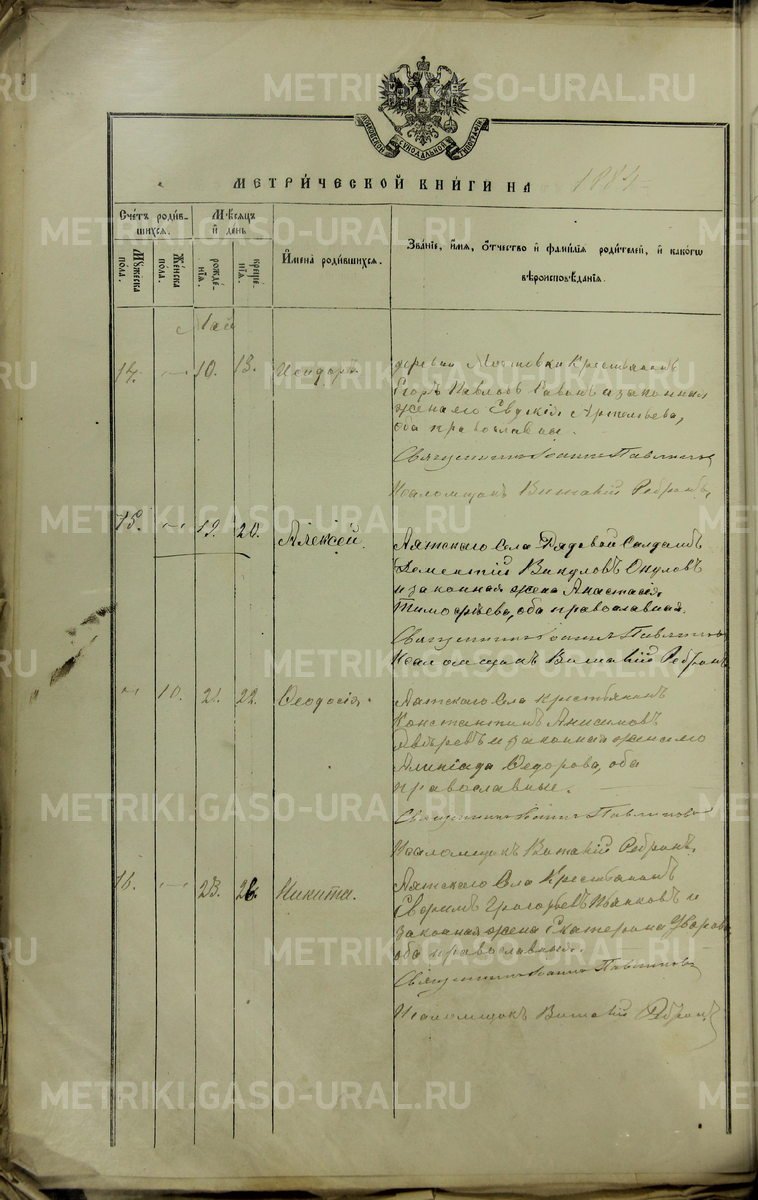 METRIKI.GASO-URAL.RU
МОСКОВСКОЙ СѴНОДАЛЬНОЙ ТИПОГРАФІИ
МЕТРИ́ЧЕСКОЙ КНИ́ГИ НА 1884
Сче́тъ роди́вшихся.
Мѣ́сяцъ и҆ де́нь
И҆мена̀ роди́вшихся.
Зва́нїе, и҆́мя, ѻ҆́тчество и҆ фами́лїя роди́телей, и҆ како́гѡ вѣроисповѣ́данїя.
Мꙋ́жеска по́ла.
Же́нска по́ла.
рожде́нїя.
креще́нїя.
Май
14. 10. 13. Исидоръ деревни Мостовки Крестьянинъ
Егоръ Павловъ и законная
жена его Евдокія Артемьева,
оба православны.
Священникъ Іоаннъ
Псаломщикъ Виталій Ребринъ
15. 19. 20. Алексѣй. Аятскаго Села Рядовой Солдатъ
Доментій Викуловъ Окуловъ
и законная жена Анастасія
Тимофѣева, оба православная.
Священникъ Іоаннъ
Псаломщикъ Виталій Ребринъ
10. 21. 22. Ѳеодосія. Аятскаго Села Крестьянинъ
Константинъ Анисимовъ
и законная жена его
Ѳедорова, оба
православные.
Священникъ Іоаннъ
Псаломщикъ Виталій Ребринъ.
16. 23. 26. Никита. Аятскаго Села Крестьянинъ
Ефримъ Григорьевъ Пьянковъ и
законная жена Екатерина
оба православные.
Священникъ Іоаннъ
Псаломщикъ Виталій Ребринъ